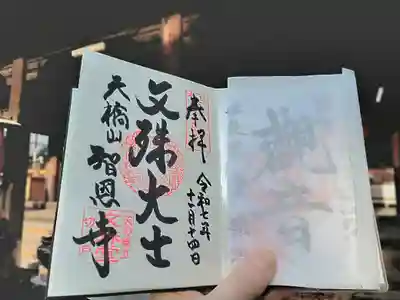 奉拝
令和七年
十一月十四日
文殊大士
天橋山
智恩寺